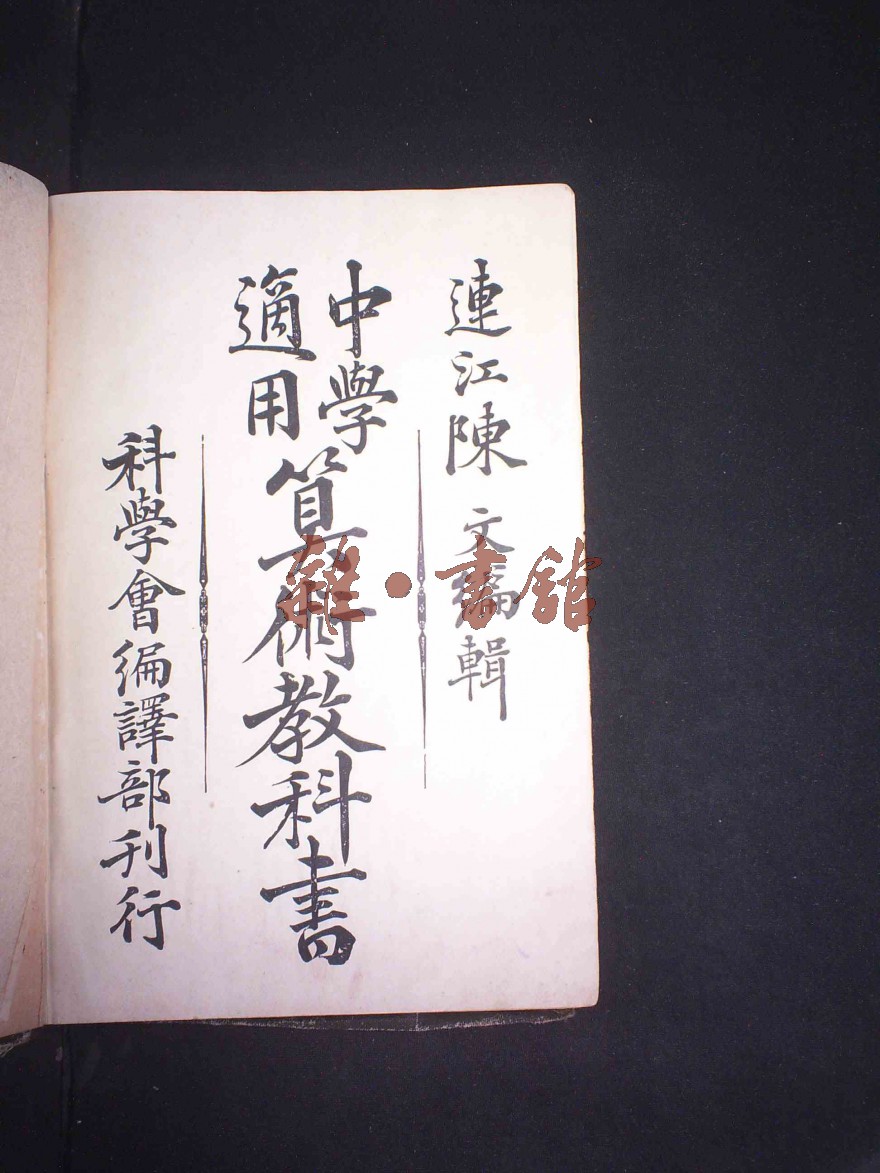 連江陳文編輯
中學適用算術教科書
科學會編譯部刊行
雜·書館